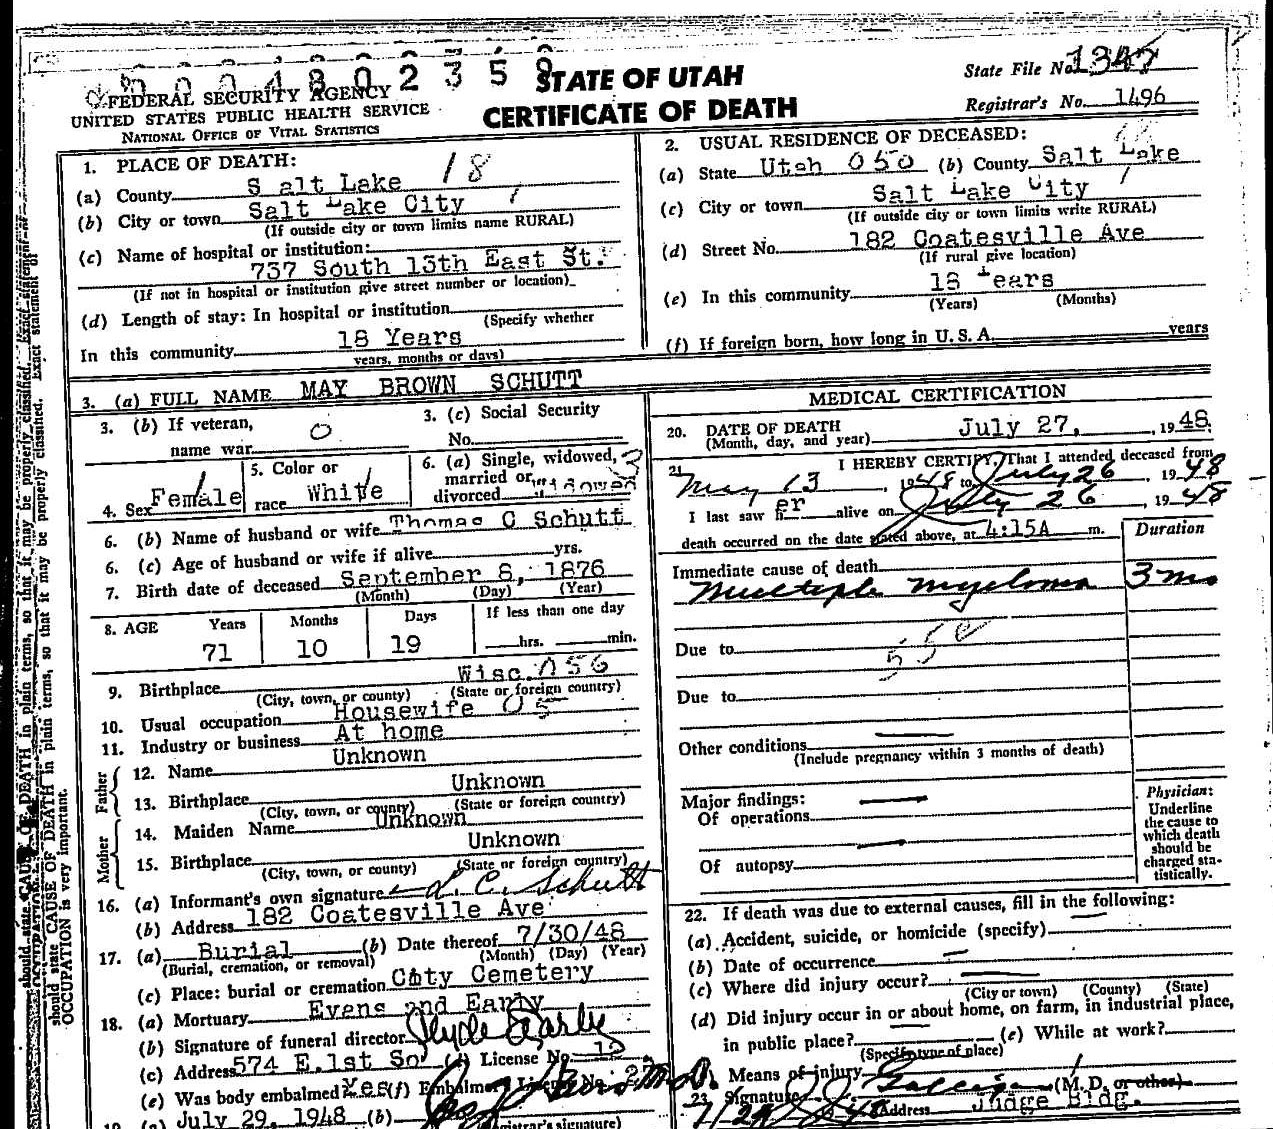 0 0 4 8 0 2 3 5 9
STATE OF UTAH
CERTIFICATE OF DEATH
FEDERAL SECURITY AGENCY
UNITED STATES PUBLIC HEALTH SERVICE
NATIONAL OFFICE OF VITAL STATISTICS
State File No.
Registrar's No. 1496
1. PLACE OF DEATH: 18
(a) County S alt Lake
(b) City or town Salt Lake City
(If outside city or town limits name RURAL)
(c) Name of hospital or institution:
737 South 13th East St.
(If not in hospital or institution give street number or location)
(d) Length of stay: In hospital or institution
(Specify whether
In this community 18 Years
years, months or days)
2. USUAL RESIDENCE OF DECEASED:
(a) State Utah 050 (b) County Salt Lake
(c) City or town Salt Lake City
(If outside city or town limits write RURAL)
(d) Street No. 182 Coatesville Ave
(If rural give location)
(e) In this community 18 Years
(Years) (Months)
(f) If foreign born, how long in U. S. A. years
3. (a) FULL NAME MAY BROWN SCHUTT
3. (b) If veteran,
name war O
3. (c) Social Security
No.
4. Sex Female
5. Color or
race White
6. (a) Single, widowed,
married or
divorced widowed
6. (b) Name of husband or wife Thomas C Schutt
6. (c) Age of husband or wife if alive yrs.
7. Birth date of deceased September 8, 1876
(Month) (Day) (Year)
8. AGE Years Months Days If less than one day
71 10 19 hrs. min.
9. Birthplace Wisc. 056
(City, town, or county) (State or foreign country)
10. Usual occupation Housewife 05
11. Industry or business At home
Father
12. Name Unknown
13. Birthplace Unknown
(City, town, or county) (State or foreign country)
Mother
14. Maiden Name Unknown
15. Birthplace Unknown
(City, town, or county) (State or foreign country)
16. (a) Informant's own signature L. C. Schutt
(b) Address 182 Coatesville Ave
17. (a) Burial (b) Date thereof 7/30/48
(Burial, cremation, or removal) (Month) (Day) (Year)
(c) Place: burial or cremation City Cemetery
18. (a) Mortuary Evans and Early
(b) Signature of funeral director
(c) Address 574 E.1st So (d) License No.
(e) Was body embalmed Yes (f) Embalmer's License No.
19. (a) July 29, 1948 (b)
(Registrar's signature)
MEDICAL CERTIFICATION
20. DATE OF DEATH
(Month, day, and year) July 27, 1948
21. I HEREBY CERTIFY, That I attended deceased from
May 13, 1948 to July 26, 1948
I last saw her alive on July 26 1948
death occurred on the date stated above, at 4:15A m.
Duration
Immediate cause of death
Multiple Myeloma 3 mo
Due to 55e
Due to
Other conditions
(Include pregnancy within 3 months of death)
Major findings:
Of operations
Of autopsy
Physician:
Underline
the cause to
which death
should be
charged sta-
tistically.
22. If death was due to external causes, fill in the following:
(a) Accident, suicide, or homicide (specify)
(b) Date of occurrence
(c) Where did injury occur?
(City or town) (County) (State)
(d) Did injury occur in or about home, on farm, in industrial place,
in public place? (e) While at work?
(Specify type of place)
Means of injury
23. Signature (M. D. or other)
Address Judge Bldg.
should state CAUSE OF DEATH in plain terms, so that it may be properly classified. Exact statement of
OCCUPATION is very important.